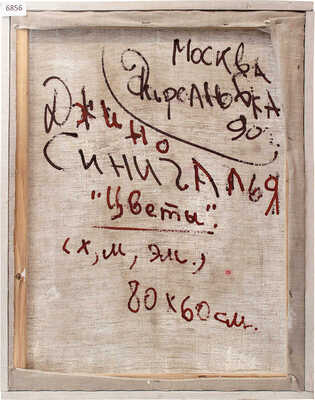 6856
Москва
Жирсановка
90
Джино
Синигалья
"Цветы".
(х, м, эм.)
80x60см.